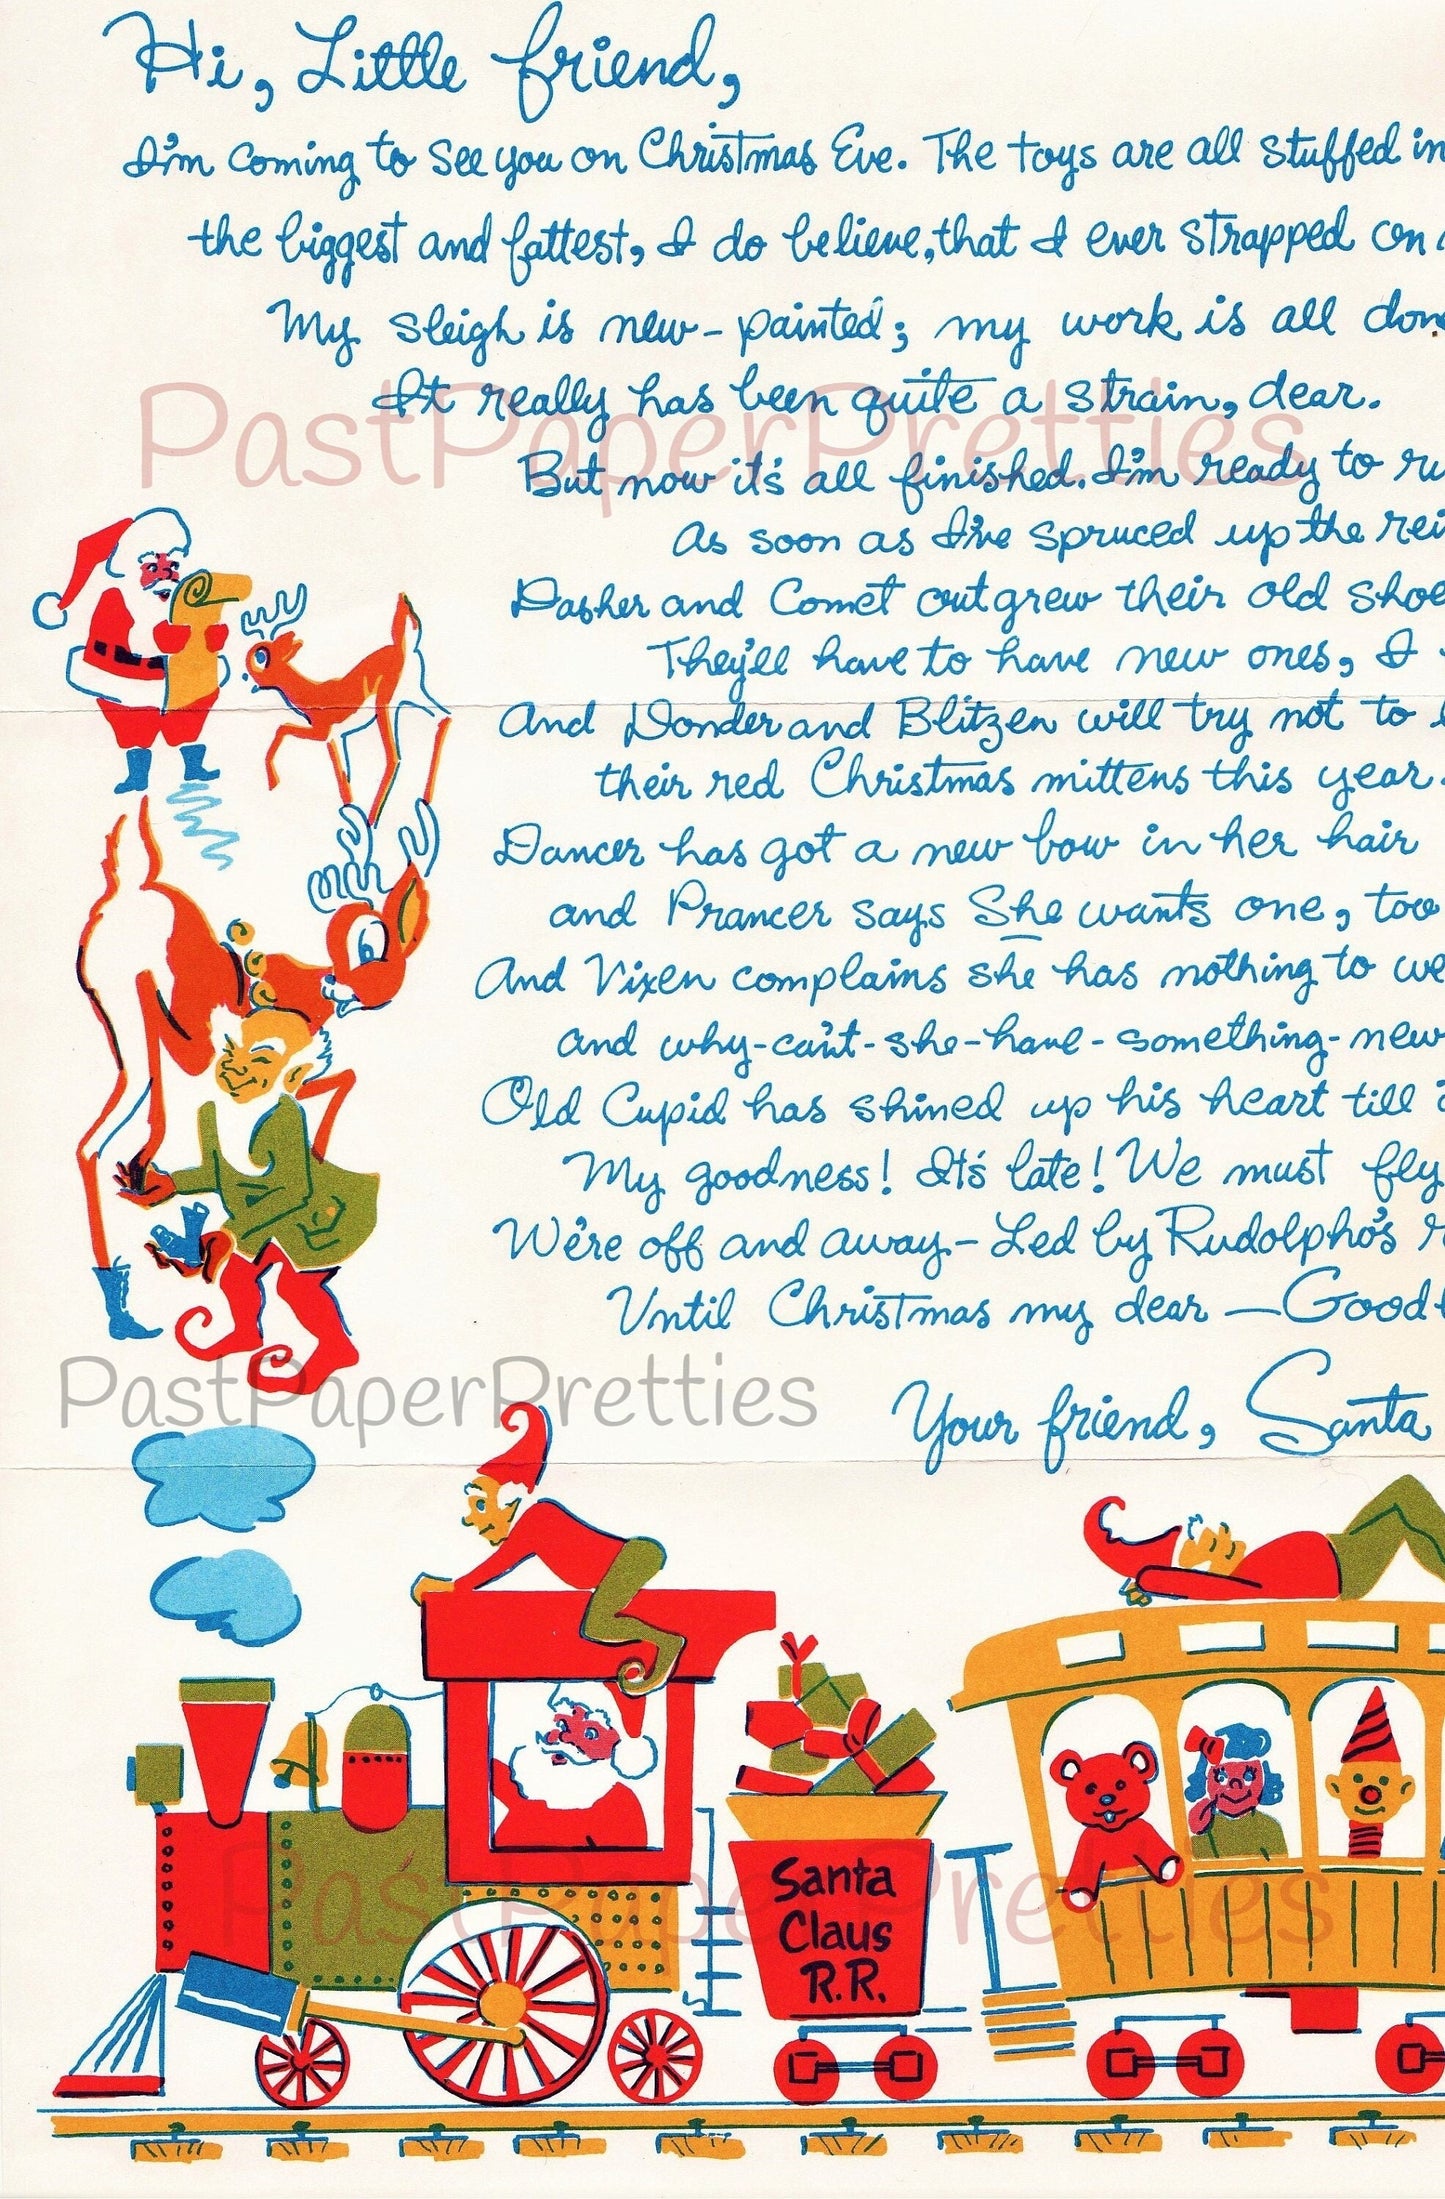 Hi, Little friend,
I'm coming to see you on Christmas Eve. The toys are all stuffed in
the biggest and fattest, I do believe, that I ever strapped on
My sleigh is new-painted; my work is all done
It really has been quite a strain, dear.
PastPaperPretties
But now it's all finished. I'm ready to ru
As soon as I've spruced up the rei
Dasher and Comet outgrew their old shoe
They'll have to have new ones, I
And Donder and Blitzen will try not to
their red Christmas mittens this year.
Dancer has got a new bow in her hair
and Prancer says She wants one, too
And Vixen complains she has nothing to we
and why-can't-she-have-something-new
Old Cupid has shined up his heart till
My goodness! It's late! We must fly
We're off and away—Led by Rudolpho's
Until Christmas my dear—Good
PastPaperPretties
Your friend, Santa
Santa
Claus
R.R.
PastPaperPretties